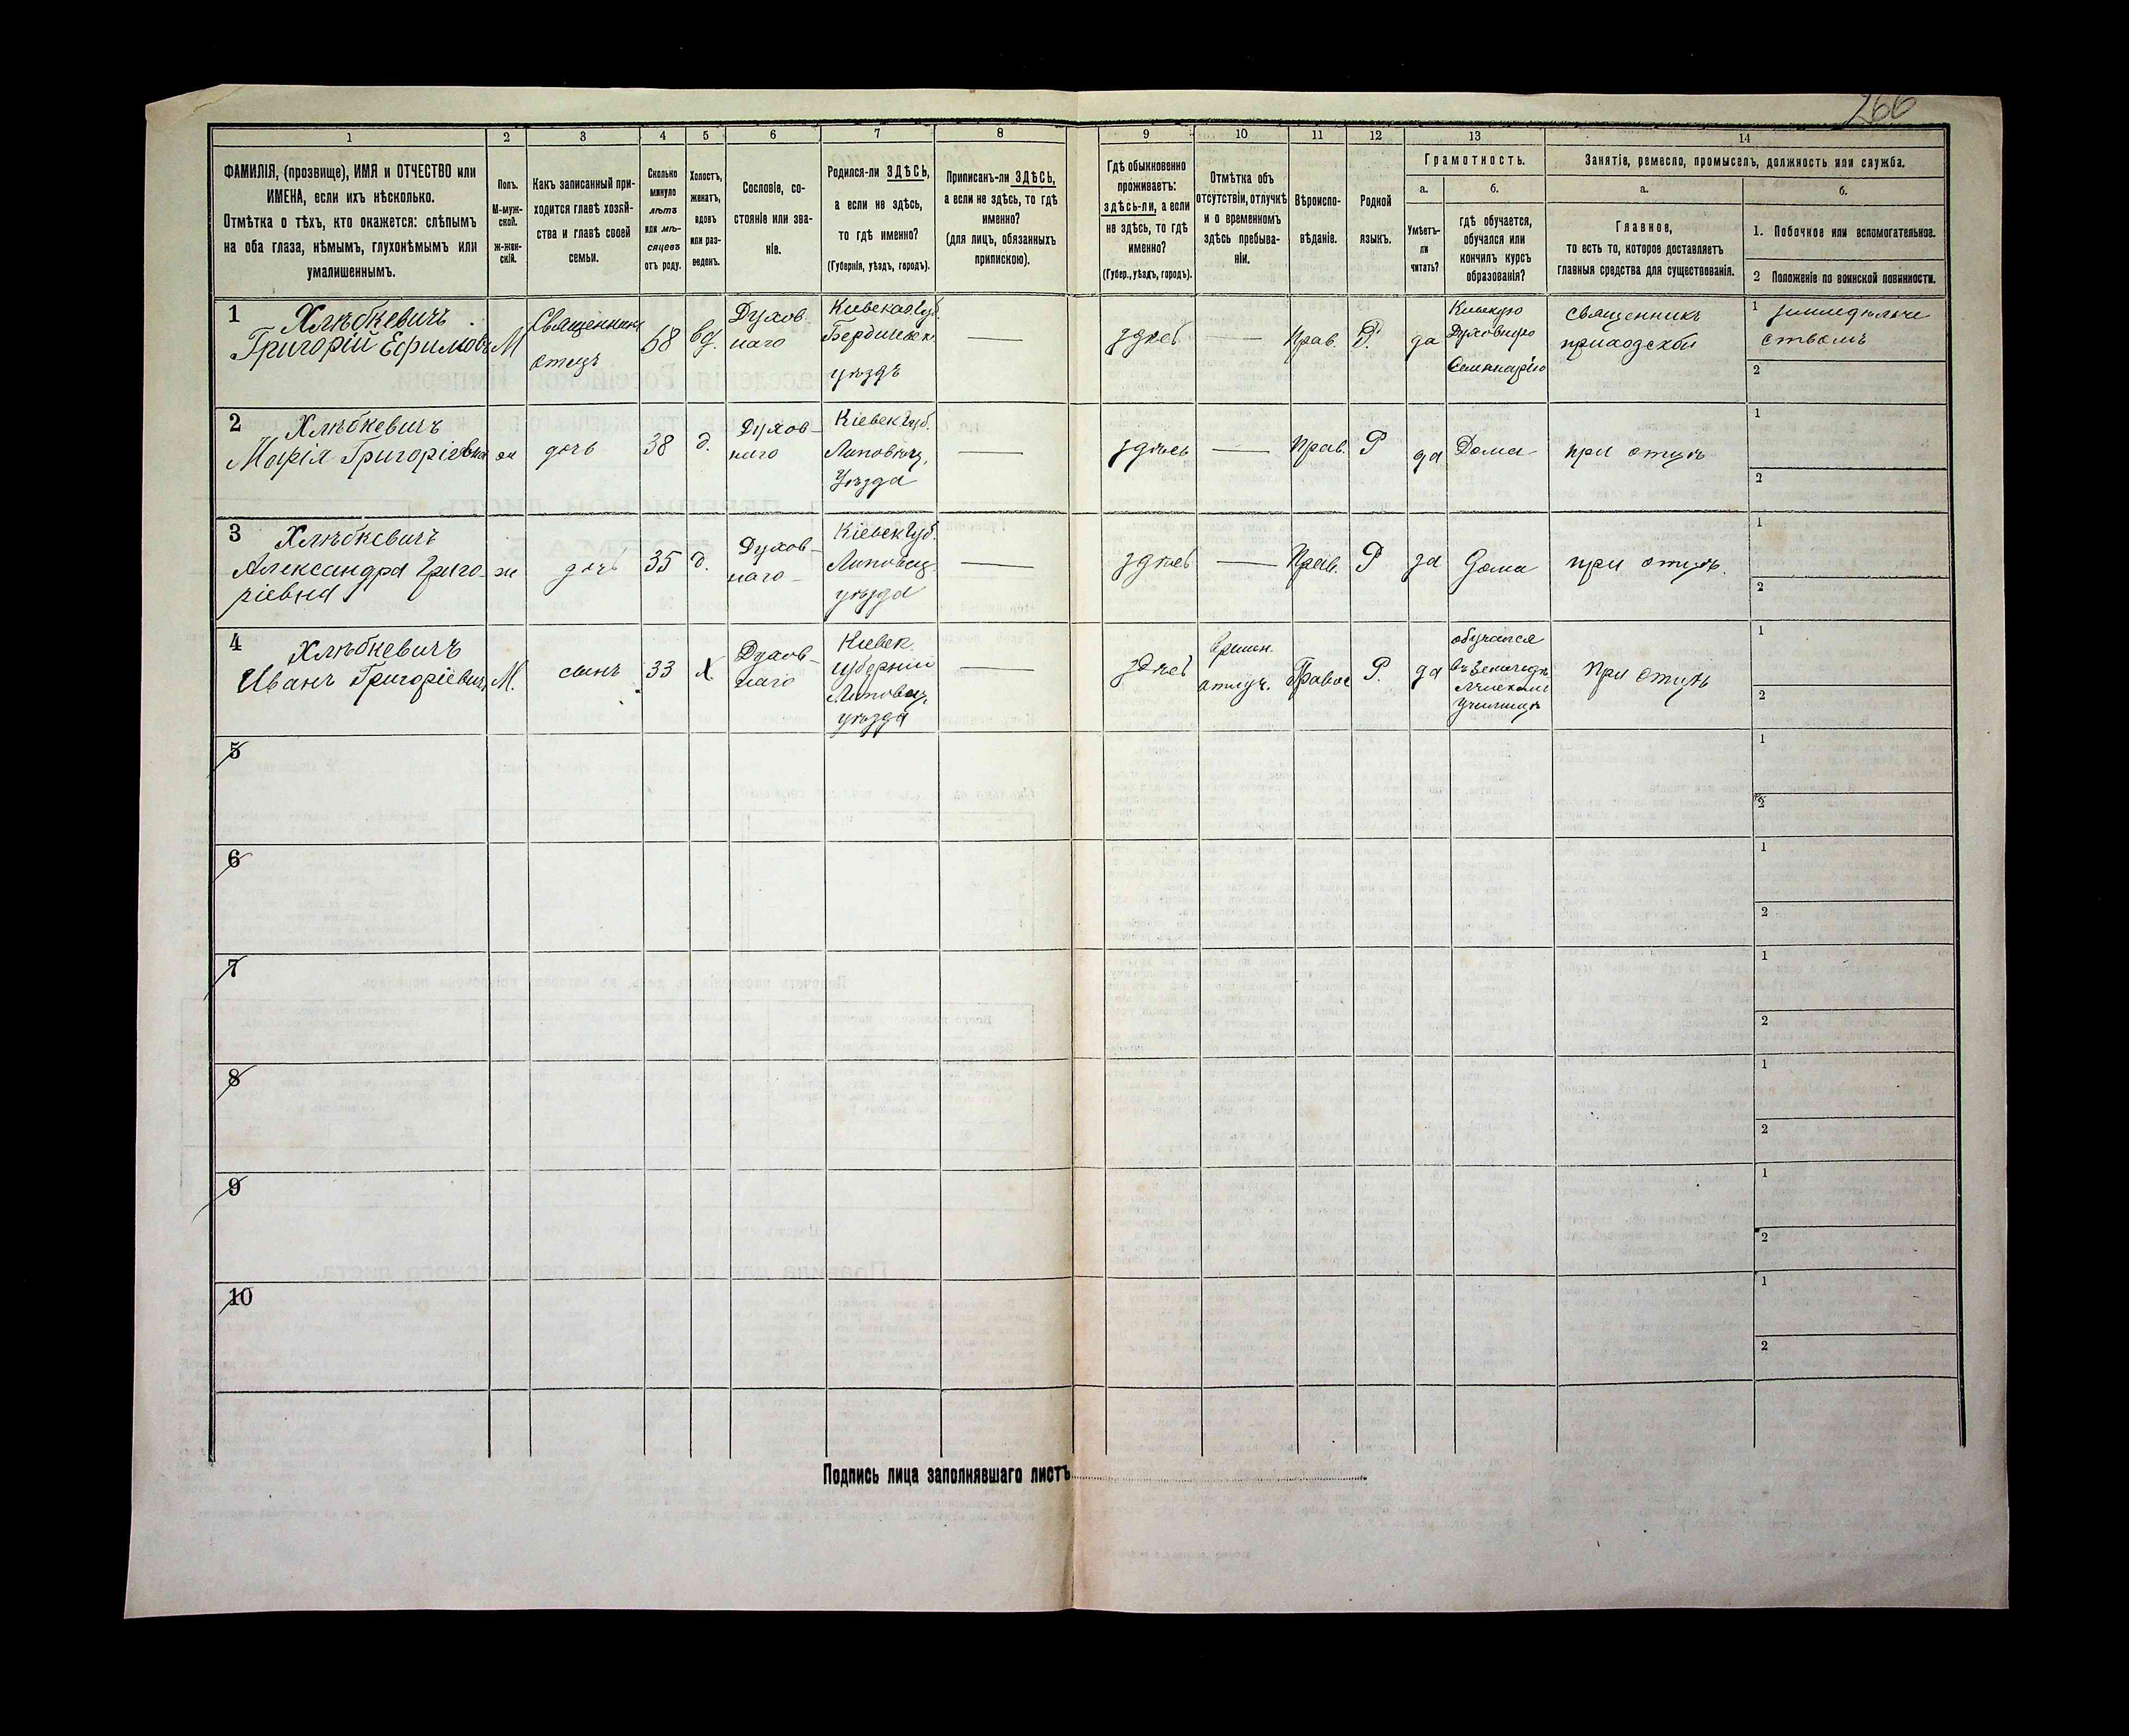 266
1 2 3 4 5 6 7 8 9 10 11 12 13 14
ФАМИЛІЯ, (прозвище), ИМЯ и ОТЧЕСТВО или
ИМЕНА, если ихъ нѣсколько.
Отмѣтка о тѣхъ, кто окажется: слѣпымъ
на оба глаза, нѣмымъ, глухонѣмымъ или
умалишеннымъ.
Полъ.
М-муж-
ской.
ж-жен-
скій.
Какъ записанный при-
ходится главѣ хозяй-
ства и главѣ своей
семьи.
Сколько
минуло
лѣтъ
или мѣ-
сяцевъ
отъ роду.
Холостъ,
женатъ,
вдовъ
или раз-
веденъ.
Сословіе, со-
стояніе или зва-
ніе.
Родился-ли ЗДѢСЬ,
а если не здѣсь,
то гдѣ именно?
(Губернія, уѣздъ, городъ).
Приписанъ-ли ЗДѢСЬ,
а если не здѣсь, то гдѣ
именно?
(для лицъ, обязанныхъ
припискою).
Гдѣ обыкновенно
проживаетъ:
здѣсь-ли, а если
не здѣсь, то гдѣ
именно?
(Губер., уѣздъ, городъ).
Отмѣтка объ
отсутствіи, отлучкѣ
и о временномъ
здѣсь пребыва-
ніи.
Вѣроиспо-
вѣданіе.
Родной
языкъ.
Грамотность.
а.
Умѣетъ-
ли
читать?
б.
гдѣ обучается,
обучался или
кончилъ курсъ
образованія?
Занятіе, ремесло, промыселъ, должность или служба.
а.
Главное,
то есть то, которое доставляетъ
главныя средства для существованія.
б.
1. Побочное или вспомогательное.
2 Положеніе по воинской повинности.
1
Хлѣбкевичъ
Григорій Ефимовъ
М
Священникъ
отецъ
68
вд.
Духов
наго
Кіевская Губ.
Бердичевск
уѣздъ
здѣсь
Прав.
Р.
да
Духовную
Семинарію
священникъ
приходскій
1
2
2
Хлѣбкевичъ
Марія Григоріевна
ж
дочь
38
д.
Духов-
наго
Кіевск Губ.
Липовец.
Уѣзда
здѣсь
Прав.
Р
да
Дома
при отцѣ
1
2
3
Хлѣбкевичъ
Александра Григо-
ріевна
ж
дочь
35
д.
Духов-
наго
Кіевск Губ.
Липовец
уѣзда
здѣсь
Прав.
Р
да
Дома
при отцѣ.
1
2
4
Хлѣбкевичъ
Иванъ Григоріевич
М.
сынъ
33
Х
Духов-
наго
Кіевск.
губерніи
Липовец.
уѣзда
здѣсь
времен.
отлуч.
Правос
Р.
да
обучался
училищѣ
При отцѣ
1
2
5
1
2
6
1
2
7
1
2
8
1
2
9
1
2
10
1
2
Подпись лица заполнявшаго листъ